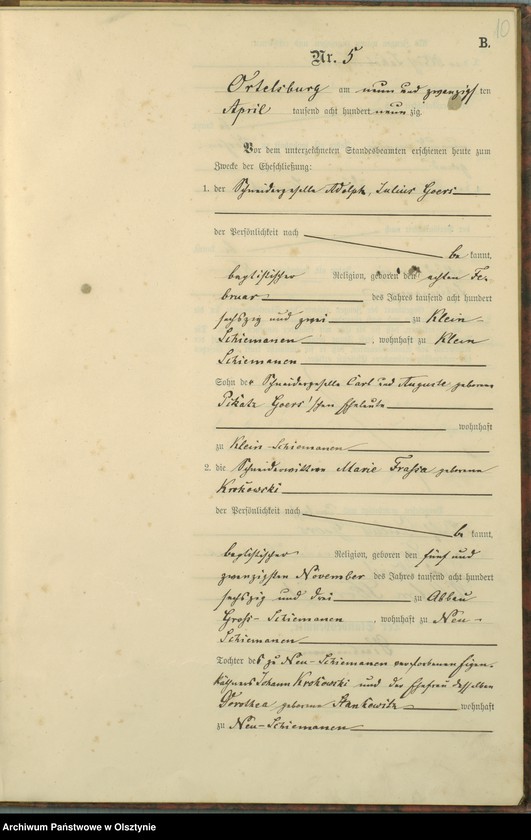 10
B.
Nr. 5
Ortelsburg am neun und zwanzigsten
April tausend acht hundert neunzig.
Vor dem unterzeichneten Standesbeamten erschienen heute zum
Zwecke der Eheschließung:
1. der Schneidergeselle Adolph, Julius Goers
der Persönlichkeit nach
bekannt,
baptistischer Religion, geboren den achten Fe-
bruar des Jahres tausend acht hundert
sechszig und zwei zu Klein-
Schiemanen, wohnhaft zu Klein
Schiemanen
Sohn der Schneidergeselle Carl und Auguste geborene
Goers'schen Eheleute
wohnhaft
zu Klein-Schiemanen
2. die Schneiderwittwe Marie geborene
Krokowski
der Persönlichkeit nach
bekannt,
baptistischer Religion, geboren den fünf und
zwanzigsten November des Jahres tausend acht hundert
sechszig und drei zu Abbau
Groß-Schiemanen, wohnhaft zu Neu-
Schiemanen
Tochter des zu Neu-Schiemanen verstorbenen Eigen-
käthners Johann Krokowski und der Ehefrau desselben
Dorothea geborene wohnhaft
zu Neu-Schiemanen
Archiwum Państwowe w Olsztynie